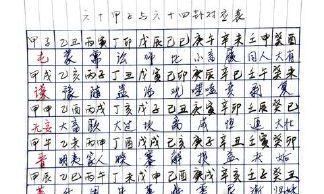 六十甲子与六十四卦对应表
甲子 乙丑 丙寅 丁卯 戊辰 己巳 庚午 辛未 壬申 癸酉
屯 蒙 需 讼 师 比 小畜 履 同人 大有
甲戌 乙亥 丙子 丁丑 戊寅 己卯 庚辰 辛巳 壬午 癸未
谦 豫 随 蛊 临 观 噬嗑 贲 剥 复
甲申 乙酉 丙戌 丁亥 戊子 己丑 庚寅 辛卯 壬辰 癸巳
无妄 大畜 颐 大过 坎 离 咸 恒 遁 大壮
甲午 乙未 丙申 丁酉 戊戌 己亥 庚子 辛丑 壬寅 癸卯
晋 明夷 家人 睽 蹇 解 损 益 夬 姤
甲辰 乙巳 丙午 丁未 戊申 己酉 庚戌 辛亥 壬子 癸丑